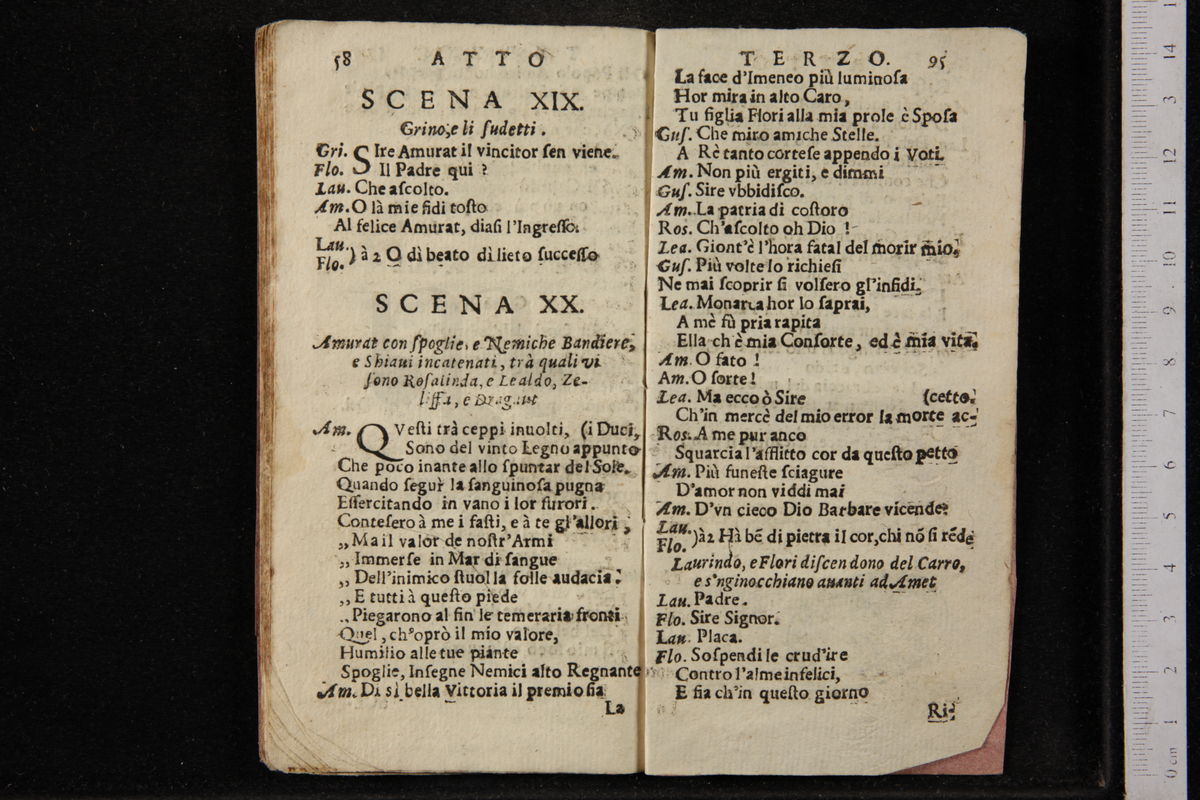 58 ATTO
SCENA XIX.
Grino, e li sudetti.
Gri. SIre Amurat il vincitor sen viene.
Flo. Il Padre qui ?
Lau. Che ascolto.
Am. O là mie fidi tosto
Al felice Amurat, diasi l'Ingresso.
Lau.
Flo. ) à 2 O dì beato dì lieto successo
SCENA XX.
Amurat con spoglie, e Nemiche Bandiere,
e Shiaui incatenati, trà quali vi
sono Rosalinda, e Lealdo, Ze-
liffa, e Dragaut
Am. QVesti trà ceppi inuolti, (i Duci,
Sono del vinto Legno appunto
Che poco inante allo spuntar del Sole.
Quando seguì la sanguinosa pugna
Essercitando in vano i lor furori.
Contesero à me i fasti, e à te gl'allori,
„ Ma il valor de nostr'Armi
„ Immerse in Mar di sangue
„ Dell'inimico stuol la folle audacia.
„ E tutti à questo piede
„ Piegarono al fin le temeraria fronti
Quel, ch'oprò il mio valore,
Humilio alle tue piante
Spoglie, Insegne Nemici alto Regnante
Am. Di sì bella Vittoria il premio sia
La
TERZO. 95
La face d'Imeneo più luminosa
Hor mira in alto Caro,
Tu figlia Flori alla mia prole è Sposa
Gus. Che miro amiche Stelle.
A Rè tanto cortese appendo i Voti.
Am. Non più ergiti, e dimmi
Gus. Sire vbbidisco.
Am. La patria di costoro
Ros. Ch'ascolto oh Dio !
Lea. Giont'è l'hora fatal del morir mio.
Gus. Più volte lo richiesi
Ne mai scoprir si volsero gl'infidi.
Lea. Monarca hor lo saprai,
A mè fù pria rapita
Ella ch'è mia Consorte, ed è mia vita.
Am. O fato !
Am. O sorte !
Lea. Ma ecco ò Sire (cetto.
Ch'in mercè del mio error la morte ac-
Ros. A me pur anco
Squarcia l'afflitto cor da questo petto
Am. Più funeste sciagure
D'amor non viddi mai
Am. D'vn cieco Dio Barbare vicende?
Lau.
Flo. )à2 Hà bẽ di pietra il cor,chi nõ si rẽde
Laurindo, e Flori discendono del Carro,
e s'nginocchiano auanti ad Amet
Lau. Padre.
Flo. Sire Signor.
Lau. Placa.
Flo. Sospendi le crud'ire
Contro l'alme infelici,
E fia ch'in questo giorno
Ri-